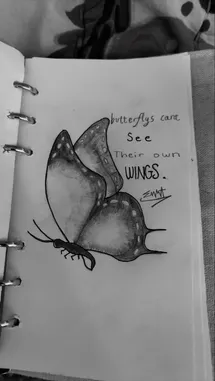 butterflys cant
See
Their own
WINGS.